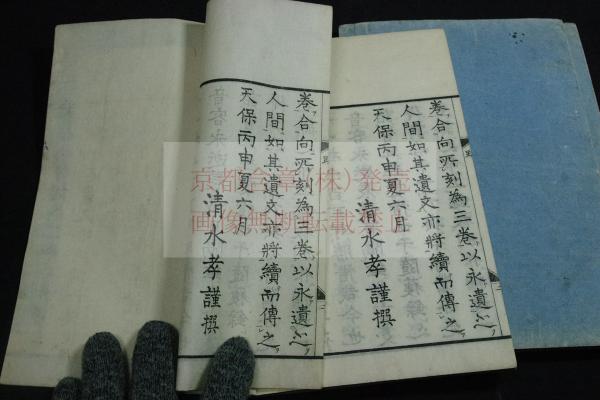 卷合向所刻為三卷以永遺之
人間如其遺文亦將續而傳之
天保丙申夏六月
清水孝謹撰
卷合向所刻為三卷以永遺之
人間如其遺文亦將續而傳之
天保丙申夏六月
清水孝謹撰
京都合章(株)発売
画像無断転載禁止